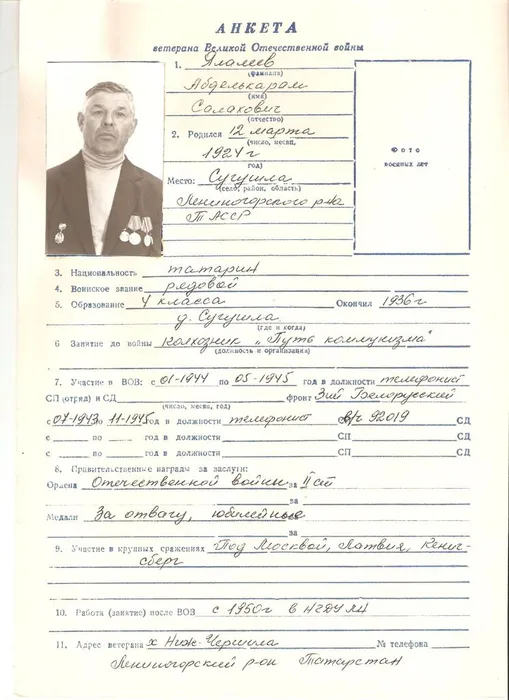 АНКЕТА
ветерана Великой Отечественной войны
1. Ялалеев
(фамилия)
Абделькарам
(имя)
Салахович
(отчество)
2. Родился 12 марта
(число, месяц,
1924 г
год)
Место: Сугушла
(село, район, область)
Лениногорского р-на
ТАССР
Фото
военных лет
3. Национальность татарин
4. Воинское звание рядовой
5. Образование 4 класса Окончил 1936 г
д. Сугушла
(где и когда)
6 Занятие до войны колхозник „Путь коммунизма"
(должность и организация)
7. Участие в ВОВ: с 01-1944 по 05-1945 год в должности телефонист
СП (отряд) в СД фронт 3ий Белорусский
(число, месяц, год)
с 07-1943 11-1945 год в должности телефонист в/ч 92019 СД
с по год в должности СП СД
с по год в должности СП СД
8. Правительственные награды за заслуги:
Ордена Отечественной войны за II ст
за
Медали За отвагу, юбилейные
за
9. Участие в крупных сражениях Под Москвой, Латвия, Кениг-
сберг
10. Работа (занятие) после ВОВ с 1950 г в НГДУ ЛН
11. Адрес ветерана х Ниж-Чершила № телефона
Лениногорский р-он Татарстан